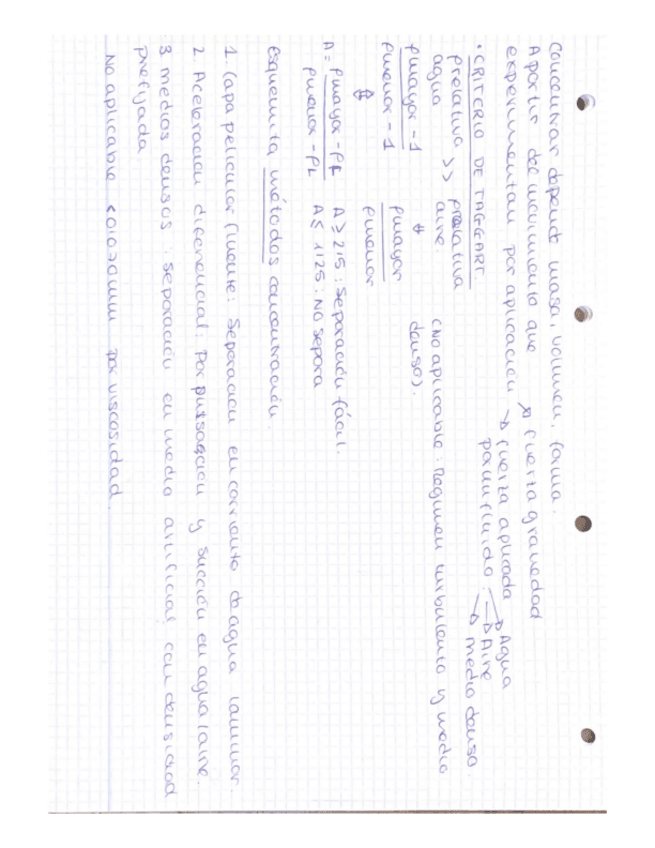 Concentrar depende masa, volumen, forma.
A partir del movimiento que
experimentan por aplicación
→ fuerza gravedad
→ fuerza aplicada
por un fluido:
→ Agua
→ Aire
→ medio denso
• CRITERIO DE TAGGART.
ρrelativa >> ρrelativa
agua aire.
(No aplicable: Regimen turbulento y medio
denso).
ρmayor - 1
ρmenor - 1
ρmayor
ρmenor
A = ρmayor - ρL
ρmenor - ρL
A ≥ 2'5: Separación fácil.
A ≤ 1'25: No separa
Esquemita métodos concentración.
1. Capa pelicular fluente: Separación en corriente de agua laminar.
2. Aceleración diferencial: Por pulsación y succión en agua/aire.
3. medios densos: separación en medio artificial con densidad
prefijada
No aplicable <0'020mm por viscosidad.